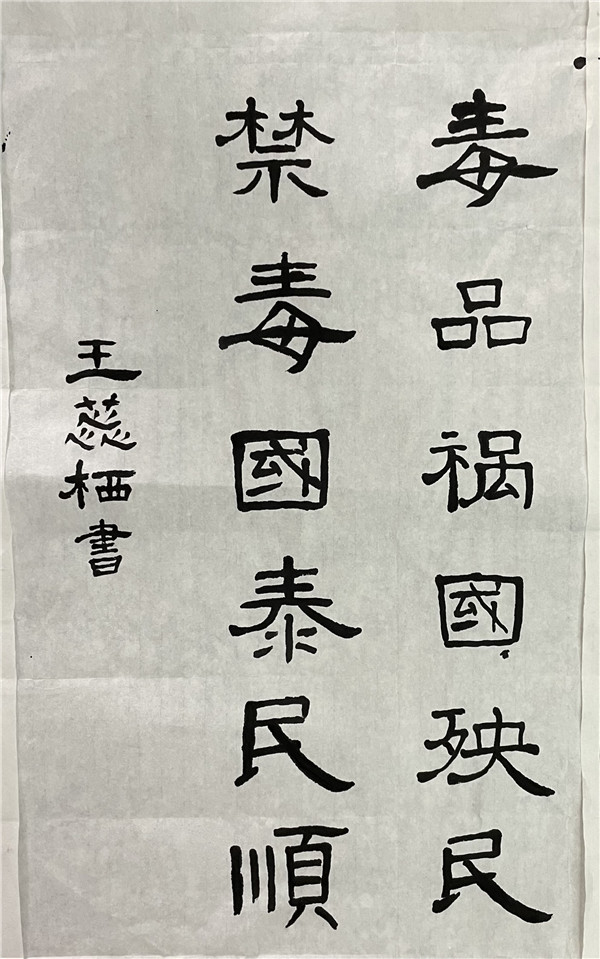 毒品祸國殃民
禁毒國泰民順
王蕊栖書